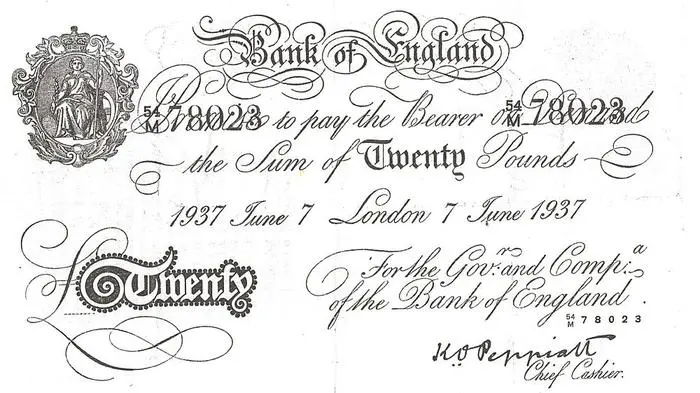 Bank of England
54/M 78023 54/M 78023
Promise to pay the Bearer on Demand
the Sum of Twenty Pounds
1937 June 7 London 7 June 1937
For the Govr. and Compa.
£Twenty
of the Bank of England.
54/M 78023
K O Peppiatt
Chief Cashier.